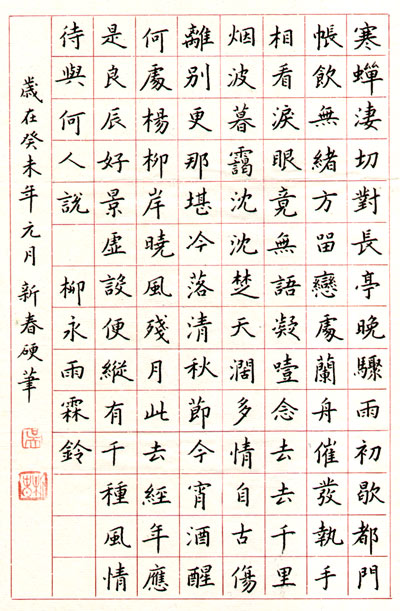 寒蟬淒切對長亭晚驟雨初歇都門
帳飲無緒方留戀處蘭舟催發執手
相看淚眼竟無語凝噎念去去千里
烟波暮靄沈沈楚天闊多情自古傷
離別更那堪冷落清秋節今宵酒醒
何處楊柳岸曉風殘月此去經年應
是良辰好景虛設便縱有千種風情
待與何人說 柳永雨霖鈴
歲在癸未年元月新春硬筆